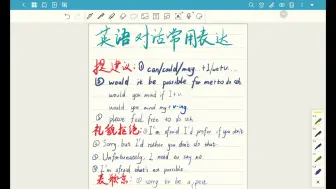 英语对话常用表达
提建议: ① can/could/may +I/we+v...
② would it be possible for me to do sth
would you mind if I+v.
would you mind my+v-ing.
③ please feel free to do sth
礼貌拒绝: ① I'm afraid I'd prefer if you didn't
② Sorry but I'd rather you didn't do that.
③ Unfortunately, I need to say no.
④ I'm afraid that's not possible.
① sorry to be a pest